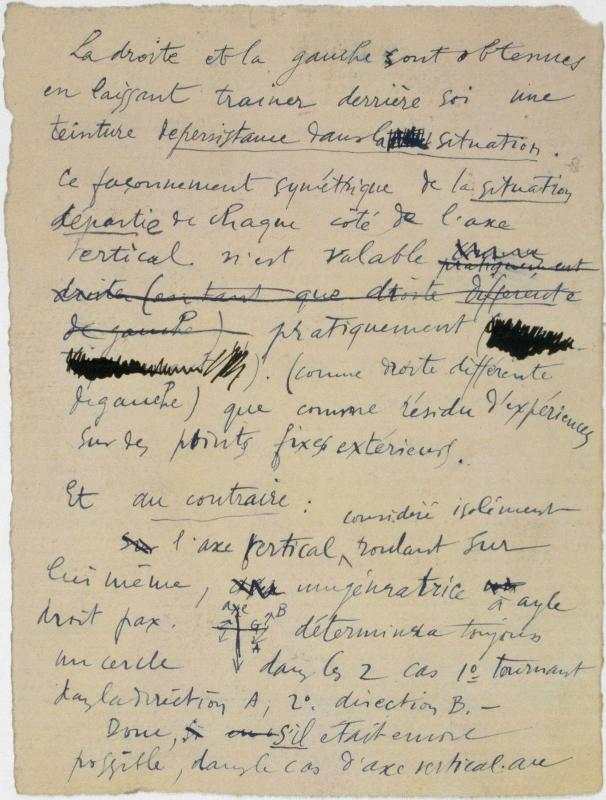 La droite et la gauche sont obtenues
en laissant trainer derrière soi une
teinture de persistance dans la situation.
Ce façonnement symétrique de la situation
départie de chaque coté de l'axe
vertical n'est valable
pratiquement
droite (en tant que droite différente
de gauche) pratiquement (
). (comme droite différente
de gauche) que comme résidu d'expériences
sur des points fixes extérieurs.
Et au contraire :
considéré isolément
sur l'axe vertical, roulant sur
lui même, une génératrice à angle
droit par ex.
axe
G D B
A
déterminera toujours
un cercle dans les 2 cas 1º tournant
dans la direction A, 2º. direction B. –
Donc, si s'il etait encore
possible, dans le cas d'axe vertical au